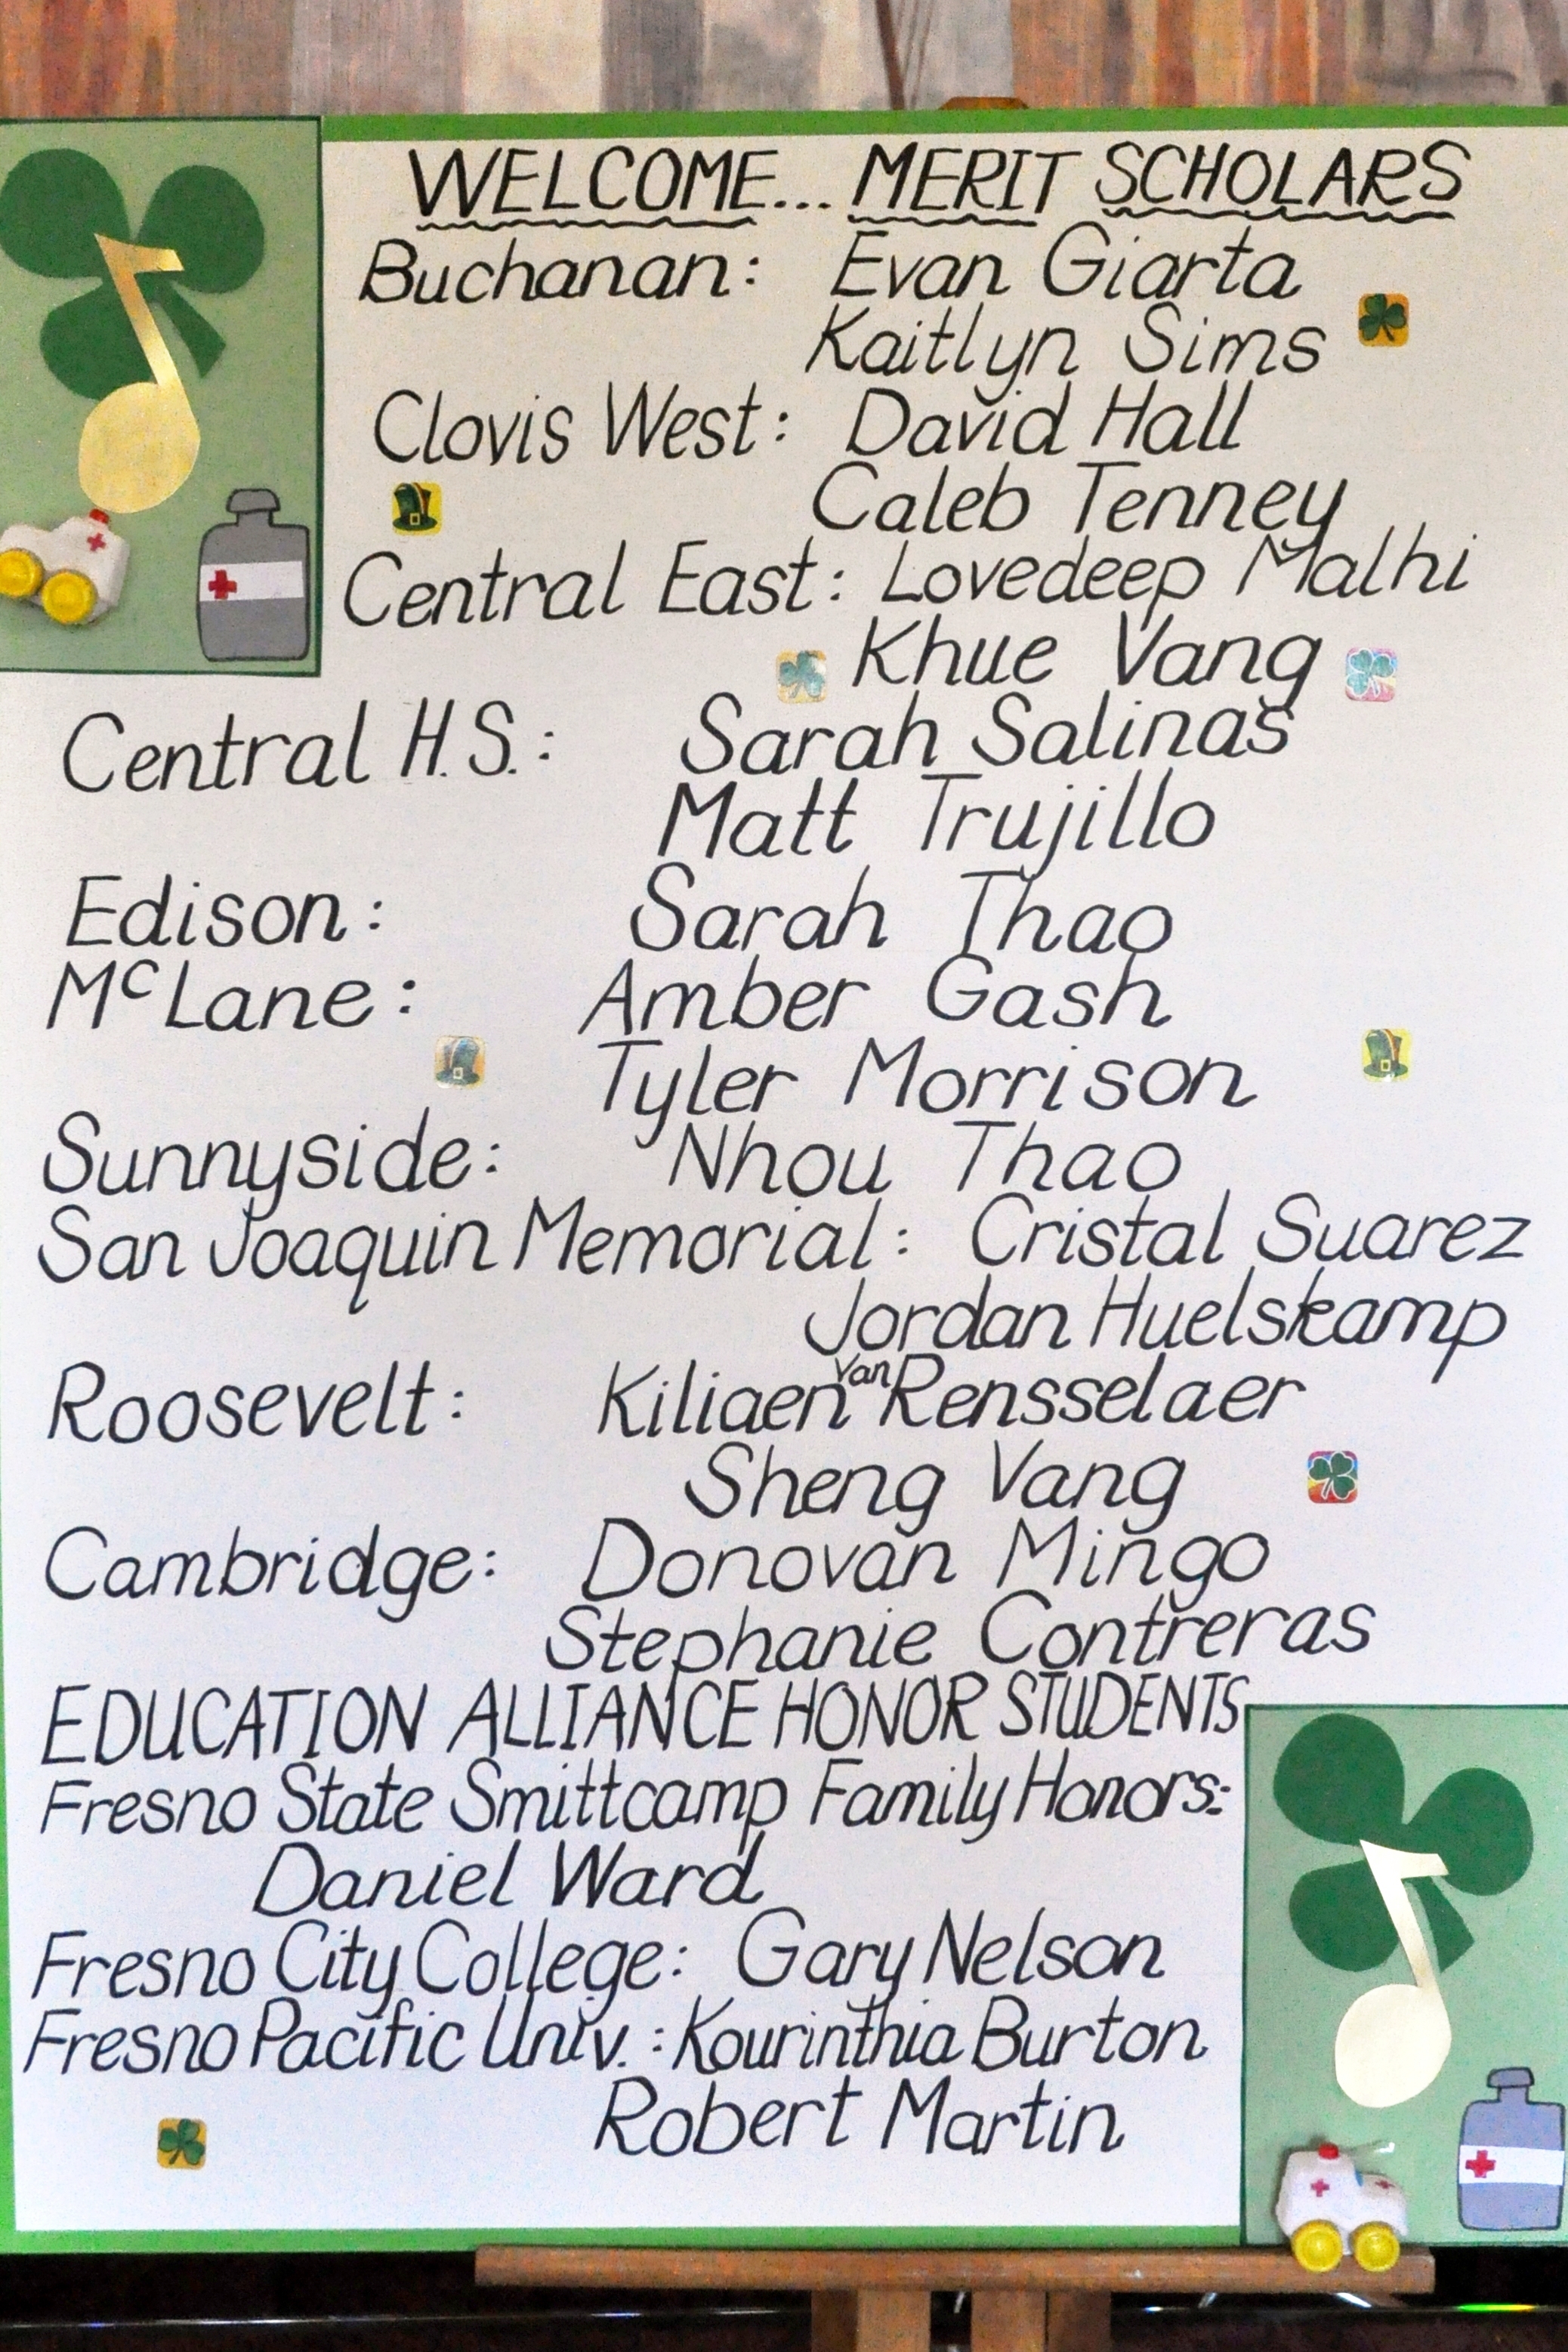 WELCOME... MERIT SCHOLARS
Buchanan: Evan Giarta
Kaitlyn Sims
Clovis West: David Hall
Caleb Tenney
Central East: Lovedeep Malhi
Khue Vang
Central H.S.: Sarah Salinas
Matt Trujillo
Edison: Sarah Thao
McLane: Amber Gash
Tyler Morrison
Sunnyside: Nhou Thao
San Joaquin Memorial: Cristal Suarez
Jordan Huelskamp
Roosevelt: Kiliaen van Rensselaer
Sheng Vang
Cambridge: Donovan Mingo
Stephanie Contreras
EDUCATION ALLIANCE HONOR STUDENTS
Fresno State Smittcamp Family Honors:
Daniel Ward
Fresno City College: Gary Nelson
Fresno Pacific Univ.: Kourinthia Burton
Robert Martin